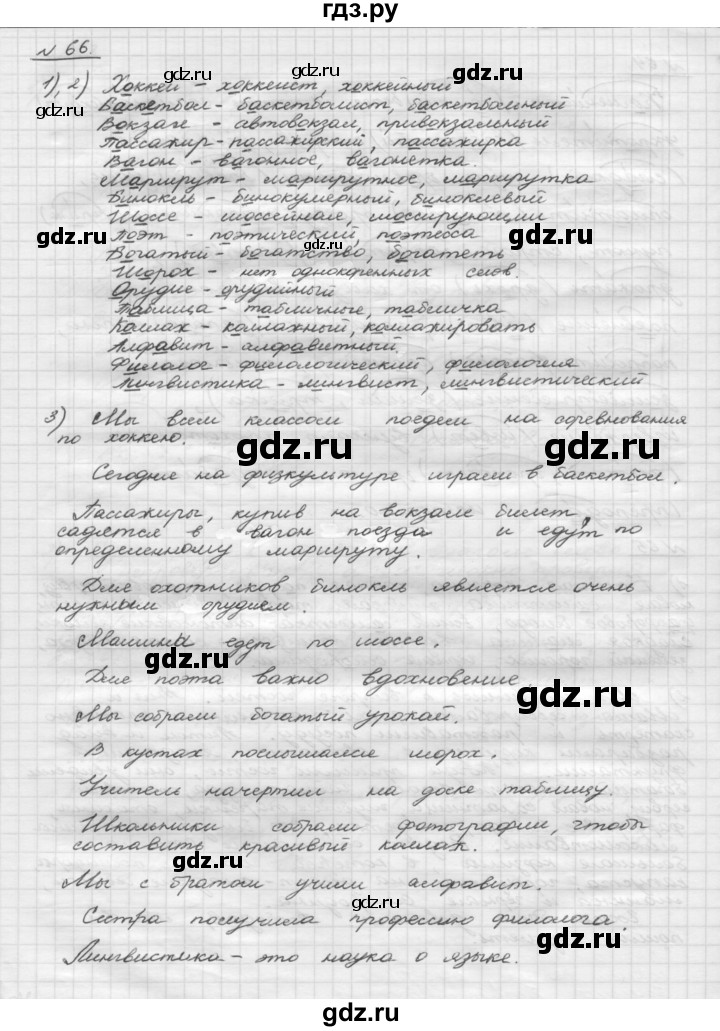 гдз.ру
№ 66.
1), 2) Хоккей – хоккеист, хоккейный
Баскетбол – баскетболист, баскетбольный
Вокзал – автовокзал, привокзальный
Пассажир – пассажирский, пассажирка
Вагон – вагонное, вагонетка.
Маршрут – маршрутное, маршрутка
Бинокль – бинокулярный, биноклевый
Шоссе – шоссейная, шоссирующий
Поэт – поэтический, поэтесса
Богатый – богатство, богатеть
Шорох – нет однокоренных слов.
Орудие – орудийный
Таблица – табличные, табличка
Коллаж – коллажный, коллажировать
Алфавит – алфавитный.
Филолог – филологический, филология
Лингвистика – лингвист, лингвистический
3) Мы всем классом поедем на соревнования
по хоккею.
Сегодня на физкультуре играли в баскетбол.
Пассажиры, купив на вокзале билет,
садятся в вагон поезда и едут по
определенному маршруту.
Для охотников бинокль является очень
нужным орудием.
Машины едут по шоссе.
Для поэта важно вдохновение.
Мы собрали богатый урожай.
В кустах послышался шорох.
Учитель начертил на доске таблицу.
Школьники собрали фотографии, чтобы
составить красивый коллаж.
Мы с братом учили алфавит.
Сестра получила профессию филолога.
Лингвистика – это наука о языке.
gdz.ru
gdz.ru
gdz.ru
gdz.ru
gdz.ru
gdz.ru
gdz.ru
gdz.ru
gdz.ru
gdz.ru
gdz.ru
gdz.ru
gdz.ru